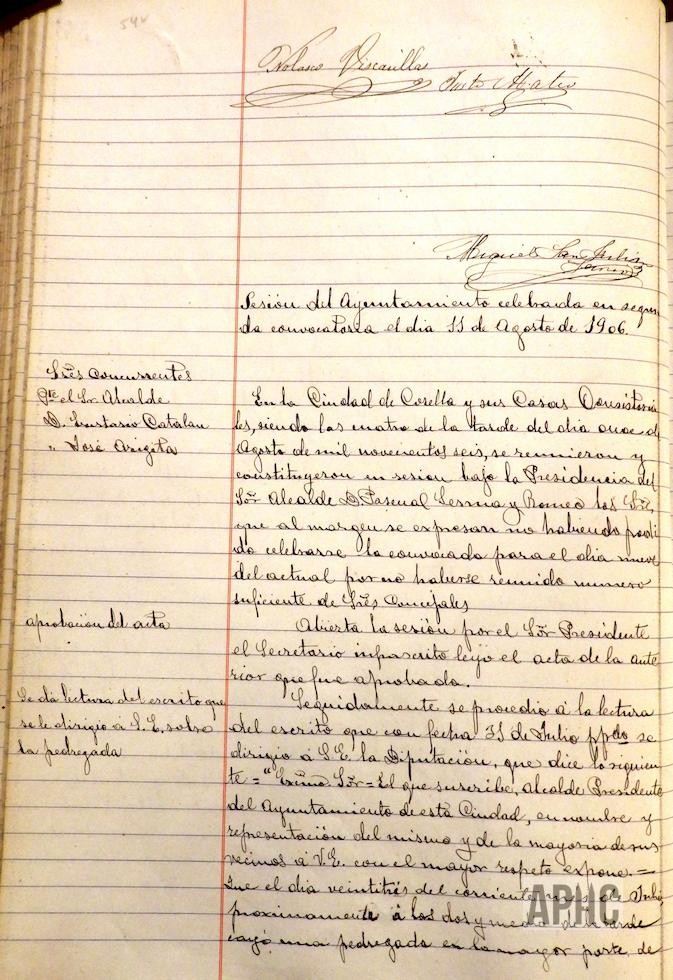 54v
Nolasco Viscasillas
Justo Mateo
Miguel San Julián
Sesión del Ayuntamiento celebrada en segun
da convocatoria el dia 11 de Agosto de 1906.
Sres Concurrentes
Pte el Sr Alcalde
D. Eustasio Catalan
" José Arigita
En la Ciudad de Corella y sus Casas Consistoria
les, siendo las cuatro de la tarde del dia once de
Agosto de mil novecientos seis, se reunieron y
constituyeron en sesion bajo la Presidencia del
Sor Alcalde D. Pascual Sesma y Romeo los Sres,
que al margen se expresan no habiendo podi
do celebrarse la convocada para el dia nueve
del actual por no haberse reunido numero
suficiente de Sres Concejales
aprobación del acta
Abierta la sesión por el Sor Presidente
el Secretario infrascrito leyó el acta de la ante
rior que fue aprobada.
Se dá lectura del escrito que
se le dirigio á S.E. sobre
la pedregada
Seguidamente se procedio á la lectura
del escrito que con fecha 31 de Julio ppdo se
dirigio á S.E. la Diputación, que dice lo siguien
te = "Excmo Sor = El que suscribe, Alcalde Presidente
del Ayuntamiento de esta Ciudad, en nombre y
representación del mismo y de la mayoria de sus
vecinos á V.E. con el mayor respeto expone =
Que el dia veintitrés del corriente mes de Julio
proximamente á las dos y media de la tarde
cayó una pedregada en la mayor parte de
APHC